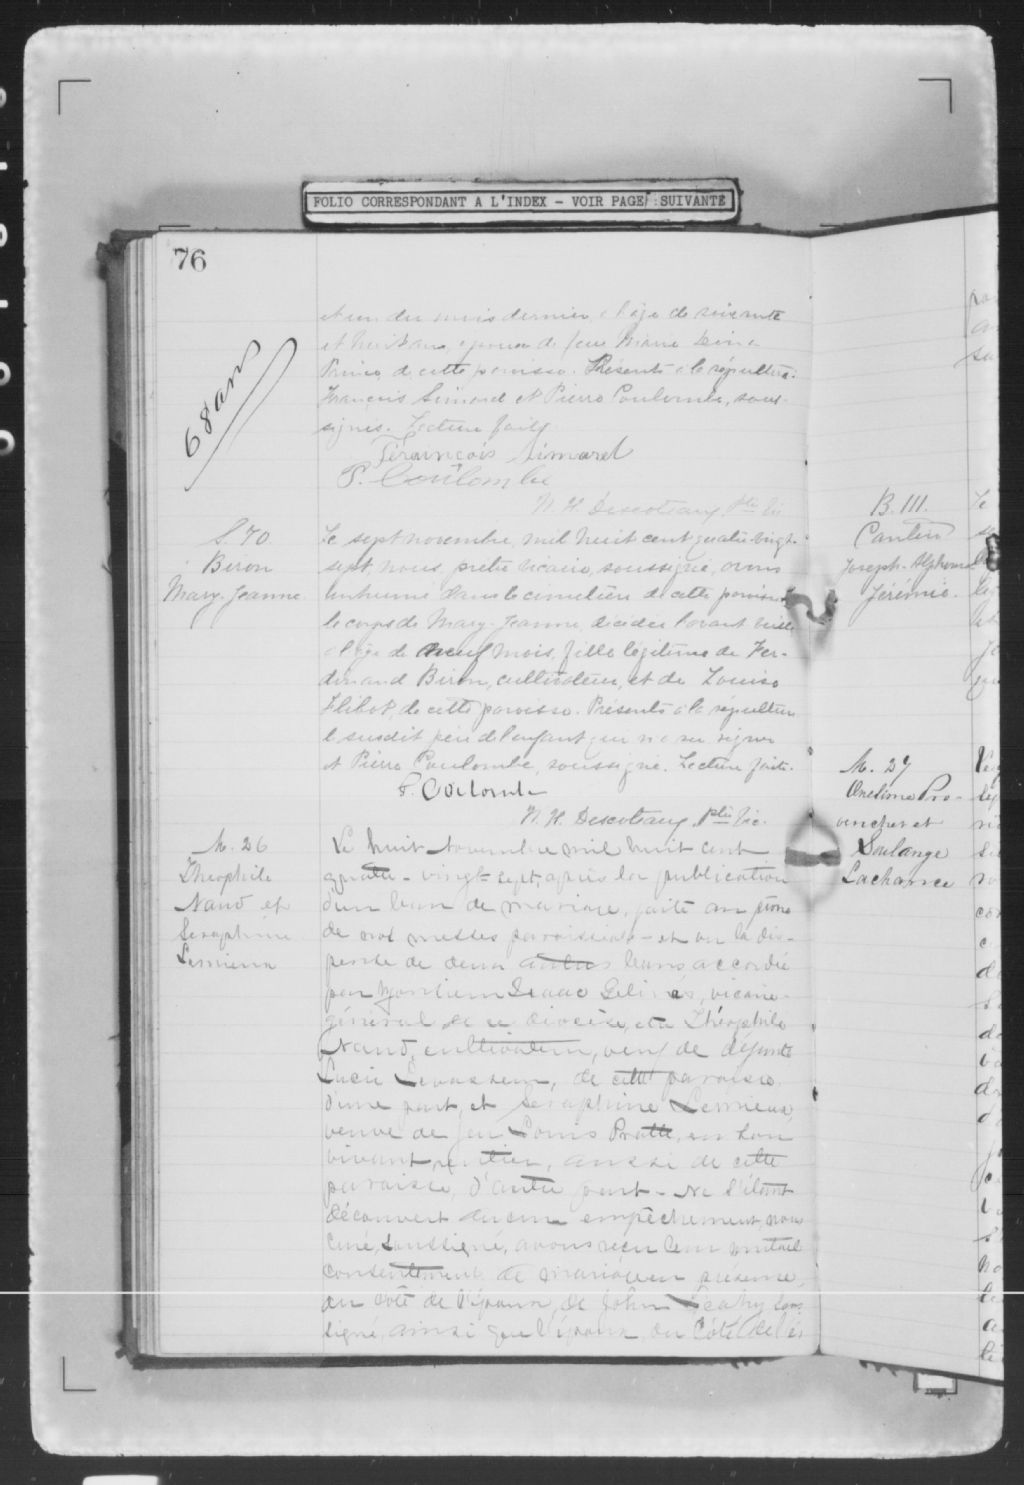 FOLIO CORRESPONDANT A L'INDEX - VOIR PAGE SUIVANTE
76
68 ans
et un du mois dernier, à l'âge de soixante
et huit ans, époux de feu Marie
Prince de cette paroisse. Présents à la sépulture:
François Simard et Pierre Coulombe, sous-
signés. Lecture faite
François Simard
P. Coulombe
N. H. Descoteaux, Ptre Vic
S. 70
Biron
Mary-Jeanne
Le sept novembre, mil huit cent quatre-vingt-
sept, nous, prêtre vicaire, soussigné, avons
inhumé dans le cimetière de cette paroisse
le corps de Mary-Jeanne, décédée l'avant veille
à l'âge de neuf mois, fille légitime de Fer-
dinand Biron, cultivateur, et de Louise
de cette paroisse. Présents à la sépulture
le susdit père de l'enfant qui n'a su signer
et Pierre Coulombe, soussigné. Lecture faite.
P. Coulombe
N. H. Descoteaux, Ptre Vic.
M. 26
Théophile
et
Séraphine
Lemieux
Le huit Novembre mil huit cent
quatre-vingt-sept, après la publication
d'un ban de mariage, faite au prône
de nos messes paroissiales et vu la dis-
pense de deux autres bans accordée
par Monsieur Isaac Gelinas, vicaire-
général de ce diocèse, entre Théophile
cultivateur, veuf de défunte
Lucie Levasseur, de cette paroisse
d'une part, et Séraphine Lemieux,
veuve de feu Louis Pratte, en son
vivant rentier, aussi de cette
paroisse, d'autre part - Ne s'étant
découvert aucun empêchement, nous
Curé, soussigné, avons reçu leur mutuel
consentement de mariage en présence,
du côté de l'époux, de John Leahy sous
signé, ainsi que l'époux, du côté de l'é
B. 111.
Cantin
Joseph-Alphonse
Jérémie.
M. 27
Onésime Pro-
vencher et
Soulange
Lachance